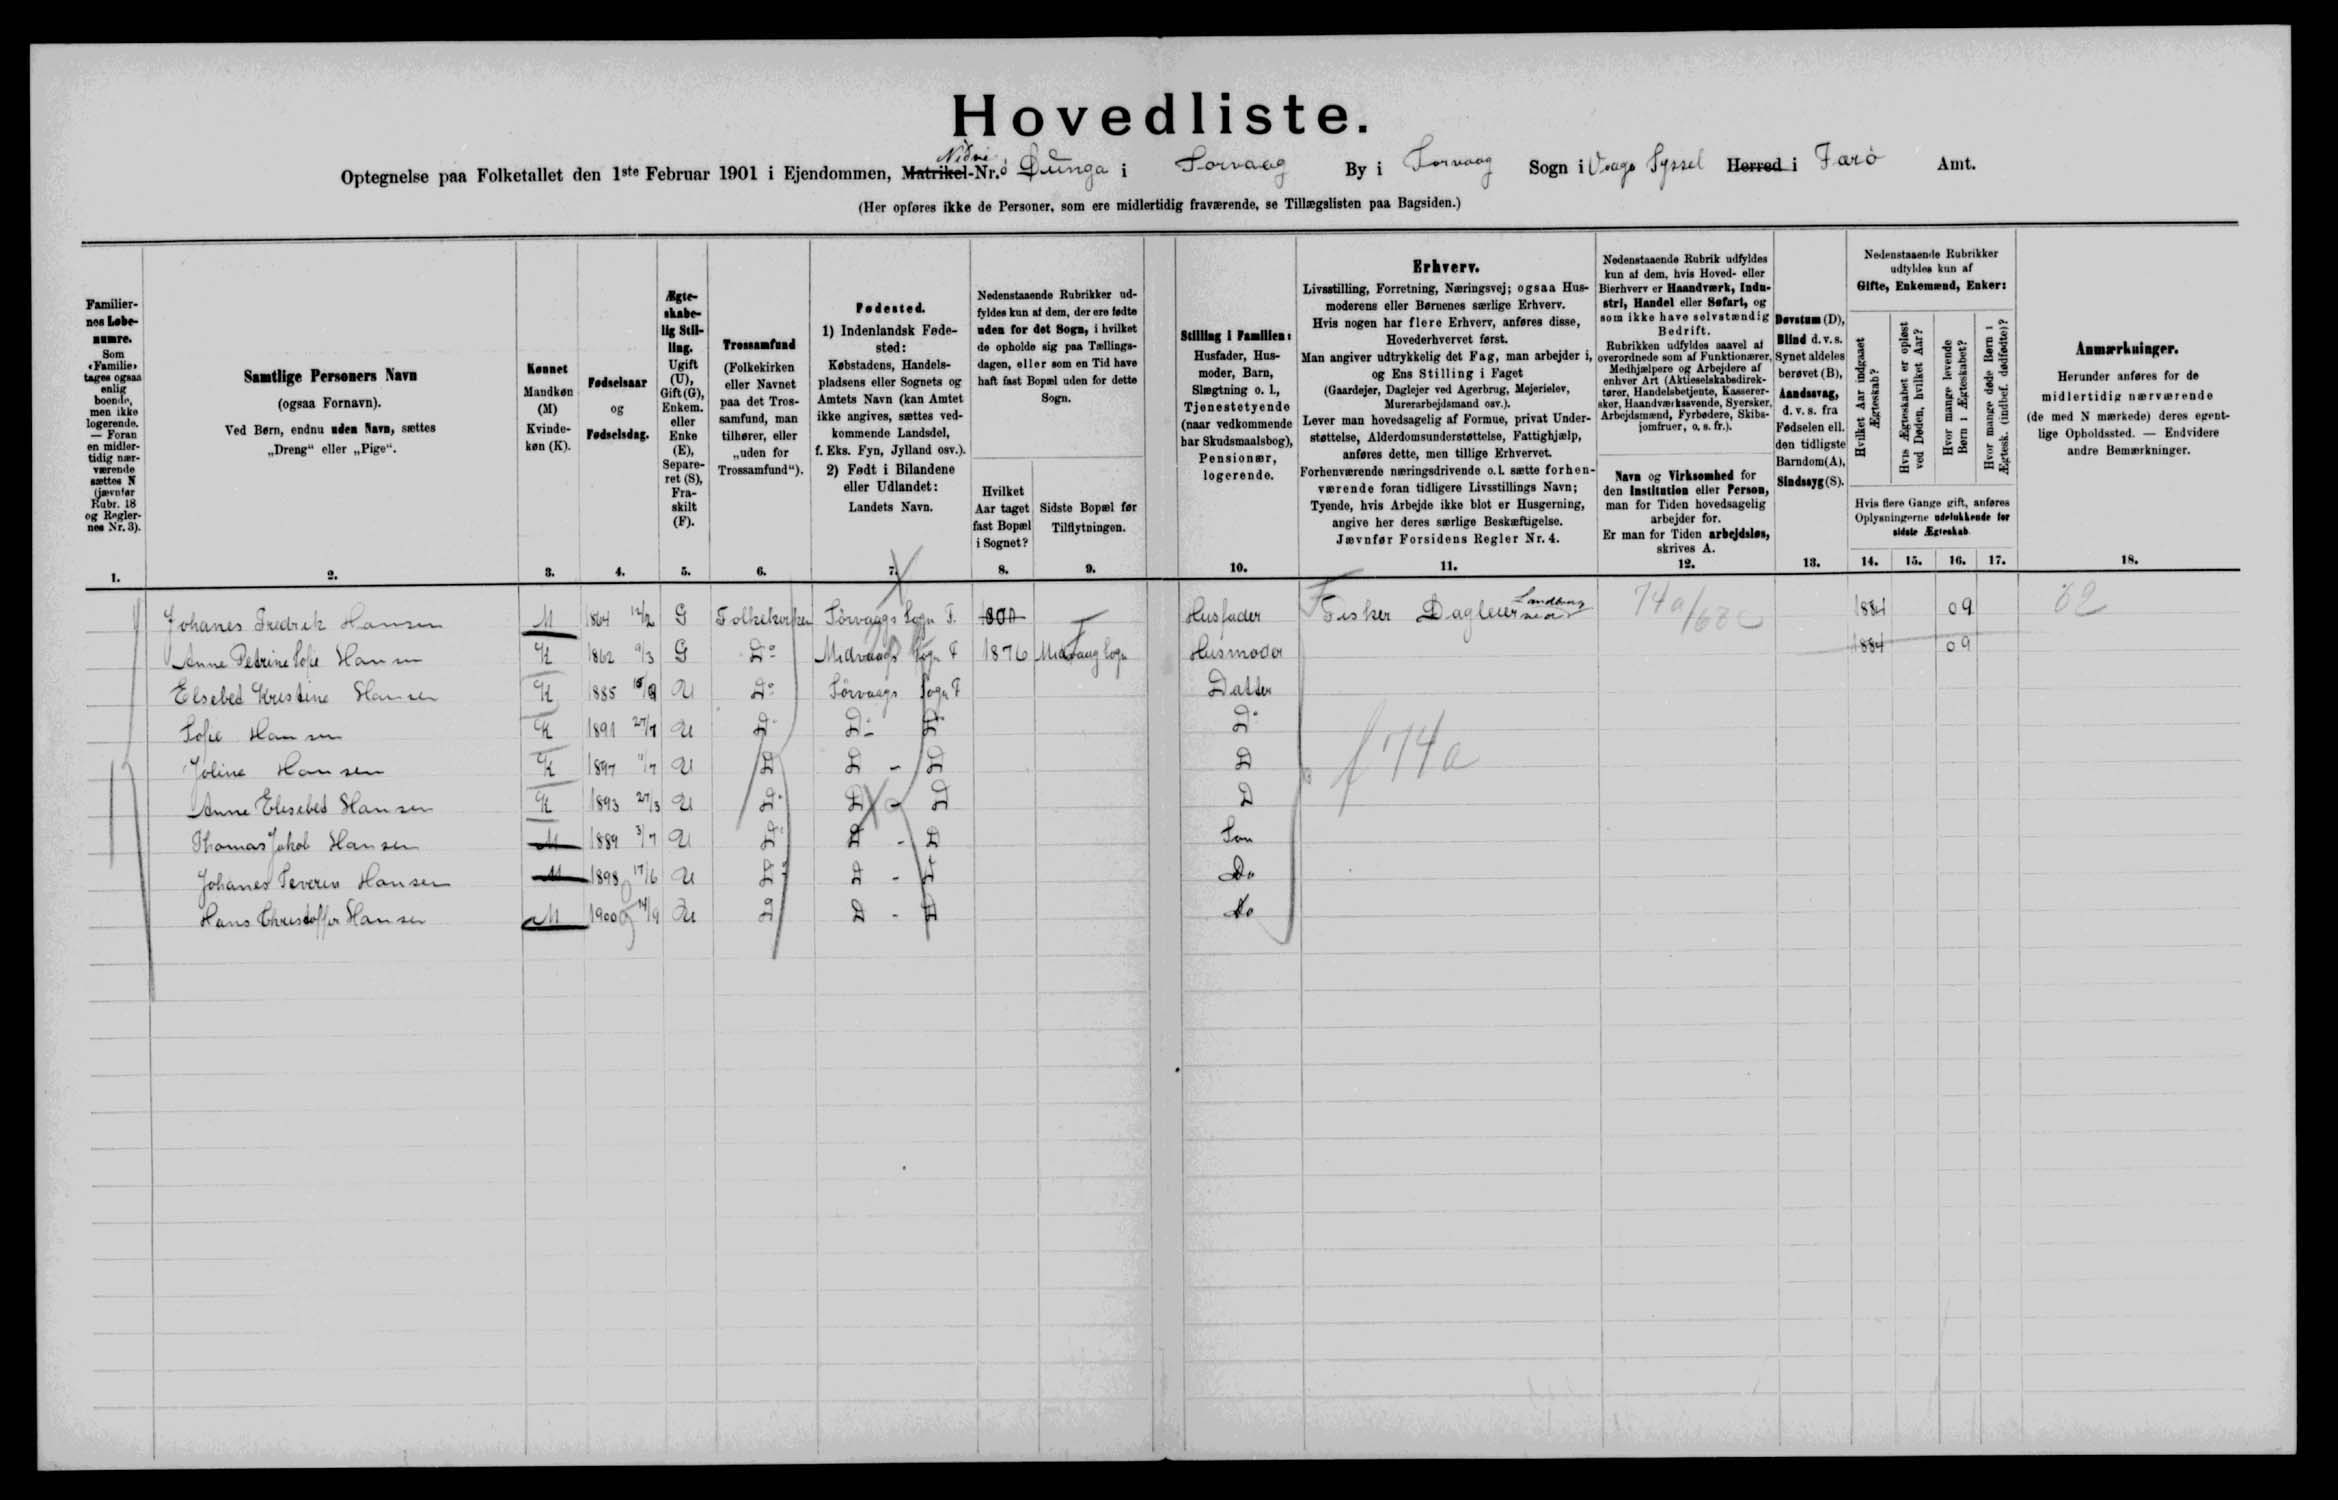 Hovedliste.
Optegnelse paa Folketallet den 1ste Februar 1901 i Ejendommen, Matrikel-Nr. i Sorvaag By i Sorvaag Sogn i Vaagø Syssel Herred i Farö Amt.
(Her opføres ikke de Personer, som ere midlertidig fraværende, se Tillægslisten paa Bagsiden.)
Familiernes Løbenumre.
Som «Familie» tages ogsaa enlig boende, men ikke logerende. — Foran en midlertidig nærværende sættes N (jævnfør Rubr. 18 og Reglernes Nr. 3).
Samtlige Personers Navn
(ogsaa Fornavn).
Ved Børn, endnu uden Navn, sættes
„Dreng“ eller „Pige“.
Kønnet
Mandkøn (M)
Kvindekøn (K).
Fødselsaar
og
Fødselsdag.
Ægteskabelig Stilling.
Ugift (U), Gift (G), Enkem. eller Enke (E), Separeret (S), Fraskilt (F).
Trossamfund
(Folkekirken eller Navnet paa det Trossamfund, man tilhører, eller „uden for Trossamfund“).
Fødested.
1) Indenlandsk Fødested:
Købstadens, Handelspladsens eller Sognets og Amtets Navn (kan Amtet ikke angives, sættes vedkommende Landsdel, f. Eks. Fyn, Jylland osv.).
2) Født i Bilandene eller Udlandet:
Landets Navn.
Nedenstaaende Rubrikker udfyldes kun af dem, der ere fødte uden for det Sogn, i hvilket de opholde sig paa Tællingsdagen, eller som en Tid have haft fast Bopæl uden for dette Sogn.
Hvilket Aar taget fast Bopæl i Sognet?
Sidste Bopæl før Tilflytningen.
Stilling i Familien:
Husfader, Husmoder, Barn, Slægtning o. l., Tjenestetyende (naar vedkommende har Skudsmaalsbog), Pensionær, logerende.
Erhverv.
Livsstilling, Forretning, Næringsvej; ogsaa Husmoderens eller Børnenes særlige Erhverv.
Hvis nogen har flere Erhverv, anføres disse, Hovederhvervet først.
Man angiver udtrykkelig det Fag, man arbejder i, og Ens Stilling i Faget
(Gaardejer, Daglejer ved Agerbrug, Mejerielev, Murerarbejdsmand osv.).
Lever man hovedsagelig af Formue, privat Understøttelse, Alderdomsunderstøttelse, Fattighjælp, anføres dette, men tillige Erhvervet.
Forhenværende næringsdrivende o. l. sætte forhenværende foran tidligere Livsstillings Navn; Tyende, hvis Arbejde ikke blot er Husgerning, angive her deres særlige Beskæftigelse.
Jævnfør Forsidens Regler Nr. 4.
Nedenstaaende Rubrik udfyldes kun af dem, hvis Hoved- eller Bierhverv er Haandværk, Industri, Handel eller Søfart, og som ikke have selvstændig Bedrift.
Rubrikken udfyldes saavel af overordnede som af Funktionærer, Medhjælpere og Arbejdere af enhver Art (Aktieselskabsdirektører, Handelsbetjente, Kasserersker, Haandværkssvende, Syersker, Arbejdsmænd, Fyrbødere, Skibsjomfruer, o. s. fr.).
Navn og Virksomhed for den Institution eller Person, man for Tiden hovedsagelig arbejder for.
Er man for Tiden arbejdsløs, skrives A.
Døvstum (D), Blind d. v. s. Synet aldeles berøvet (B), Aandssvag, d. v. s. fra Fødselen ell. den tidligste Barndom (A), Sindssyg (S).
Nedenstaaende Rubrikker udfyldes kun af
Gifte, Enkemænd, Enker:
Hvilket Aar indgaaet Ægteskab?
Hvis Ægteskabet er opløst ved Døden, hvilket Aar?
Hvor mange levende Børn i Ægteskabet?
Hvor mange døde Børn i Ægtesk. (indbef. dødfødte)?
Hvis flere Gange gift, anføres Oplysningerne udelukkende for sidste Ægteskab.
Anmærkninger.
Herunder anføres for de midlertidig nærværende (de med N mærkede) deres egentlige Opholdssted. — Endvidere andre Bemærkninger.
1. 2. 3. 4. 5. 6. 7. 8. 9. 10. 11. 12. 13. 14. 15. 16. 17. 18.
Johanes Fredrik Hansen M 1864 12/2 G Folkekirken Sörvaags Sogn F. Husfader Fisker Dagleier 74a 1884 09 82
Anne Petrine Sofie Hansen K 1862 9/3 G Do Midvaags Sogn F 1876 Midvaag Sogn Husmoder 1884 09
Elsebet Kristine Hansen K 1885 U Do Sörvaags Sogn F Datter
Sofie Hansen K 1891 27/7 U Do Do Do Do
Joline Hansen K 1897 11/7 U D D - D D
Anne Elisebet Hansen K 1893 27/3 U D D - D D
f 74a
Thomas Jakob Hansen M 1889 3/7 U D D - D Son
Johanes Severin Hansen M 1898 17/6 U D D - D Do
Hans Christoffer Hansen M 1900 14/9 U D D - D Do